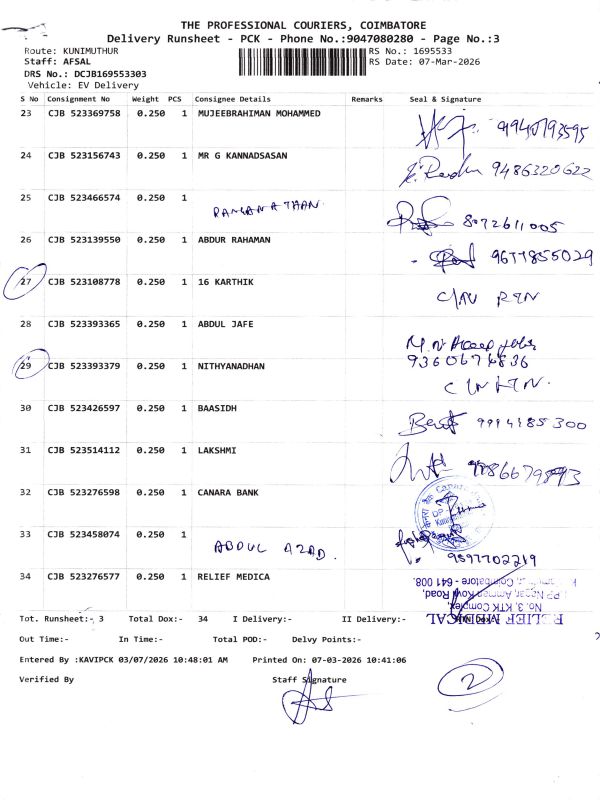 THE PROFESSIONAL COURIERS, COIMBATORE
Delivery Runsheet - PCK - Phone No.:9047080280 - Page No.:3
Route: KUNIMUTHUR RS No.: 1695533
Staff: AFSAL RS Date: 07-Mar-2026
DRS No.: DCJB169553303
Vehicle: EV Delivery
S No Consignment No Weight PCS Consignee Details Remarks Seal & Signature
23 CJB 523369758 0.250 1 MUJEEBRAHIMAN MOHAMMED
24 CJB 523156743 0.250 1 MR G KANNADSASAN 9486320622
25 CJB 523466574 0.250 1 RAMANATHAN. 8072611005
26 CJB 523139550 0.250 1 ABDUR RAHAMAN 9677855029
27 CJB 523108778 0.250 1 16 KARTHIK
28 CJB 523393365 0.250 1 ABDUL JAFE
9360674836
29 CJB 523393379 0.250 1 NITHYANADHAN
30 CJB 523426597 0.250 1 BAASIDH
31 CJB 523514112 0.250 1 LAKSHMI
32 CJB 523276598 0.250 1 CANARA BANK
33 CJB 523458074 0.250 1 ABDUL AZAD. 9597702219
34 CJB 523276577 0.250 1 RELIEF MEDICA
RELIEF MEDICAL
No. 3, KTK Complex,
Nagar, Amman Kovil Road,
Coimbatore - 641 008.
Tot. Runsheet:- 3 Total Dox:- 34 I Delivery:- II Delivery:-
Out Time:- In Time:- Total POD:- Delvy Points:-
Entered By :KAVIPCK 03/07/2026 10:48:01 AM Printed On: 07-03-2026 10:41:06
Verified By Staff Signature
2